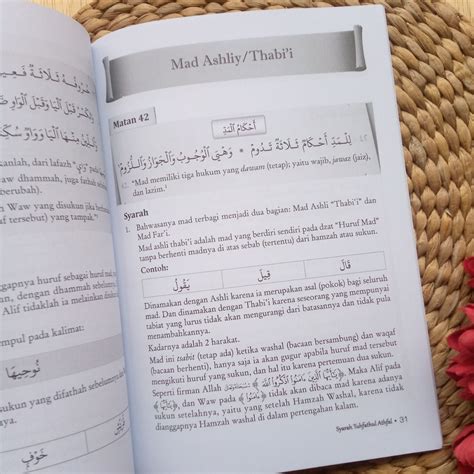 حُرُوفُهُ ثَلَاثَةٌ فَعِي
وَقَبْلَ الْيَا وَقَبْلَ الْوَاوِ ضَمْ
مِنْهَا الْيَا وَوَاوٌ سُكِّنَا
canlah, dari lafazh
w dhammah, juga fathah
berubah).
n Waw yang disukun jika
f tersebut) yang tampak."
gucapan huruf sebelum
n, dengan dhammah sebelum
Alif tidaklah ia melainkan
mpul pada kalimat:
نُوحِيهَا
g difathah sebelumnya
Mad Ashliy/Thabi'i
Matan 42
أَحْكَامُ الْمَدِّ
لِلْمَدِّ أَحْكَامٌ ثَلَاثَةٌ تَدُومْ * وَهْيَ الْوُجُوبُ وَالْجَوَازُ وَاللُّزُومْ
42. "Mad memiliki tiga hukum yang dawam (tetap); yaitu wajib, jawaz (jaiz),
dan lazim."
Syarah
1. Bahwasanya mad terbagi menjadi dua bagian: Mad Ashli "Thabi'i" dan
Mad Far'i.
Mad ashli thabi'i adalah mad yang berdiri sendiri pada dzat "Huruf Mad"
tanpa berhenti madnya di atas sebab (tertentu) dari hamzah atau sukun.
Contoh:
قَالَ قِيلَ يَقُولُ
Dinamakan dengan Ashli karena ia merupakan asal (pokok) bagi seluruh
mad. Dan dinamakan dengan Thabi'i karena seseorang yang mempunyai
tabiat yang lurus tidak akan mengurangi dari batasannya dan tidak pula
menambahkannya.
Kadarnya adalah 2 harakat.
Mad ini tsabit (tetap ada) ketika washal (bacaan bersambung) dan waqaf
(bacaan berhenti), hanya saja ia akan gugur apabila huruf mad tersebut
mengikuti huruf yang sukun, dan hal itu karena pertemuan dua sukun.
Seperti firman Allah ﴿يَٰٓأَيُّهَا الَّذِينَ ءَامَنُوا اذْكُرُوا اللَّهَ﴾. Maka Alif pada
﴿يَٰٓأَيُّهَا﴾, dan Waw pada ﴿ءَامَنُوا﴾ tidak akan dibaca mad karena adanya
sukun setelahnya, yaitu yang setelah Hamzah Washal, karena tidak
dianggapnya Hamzah washal di dalam pertengahan kalam.
Syarah Tuhfathul Athfal • 31